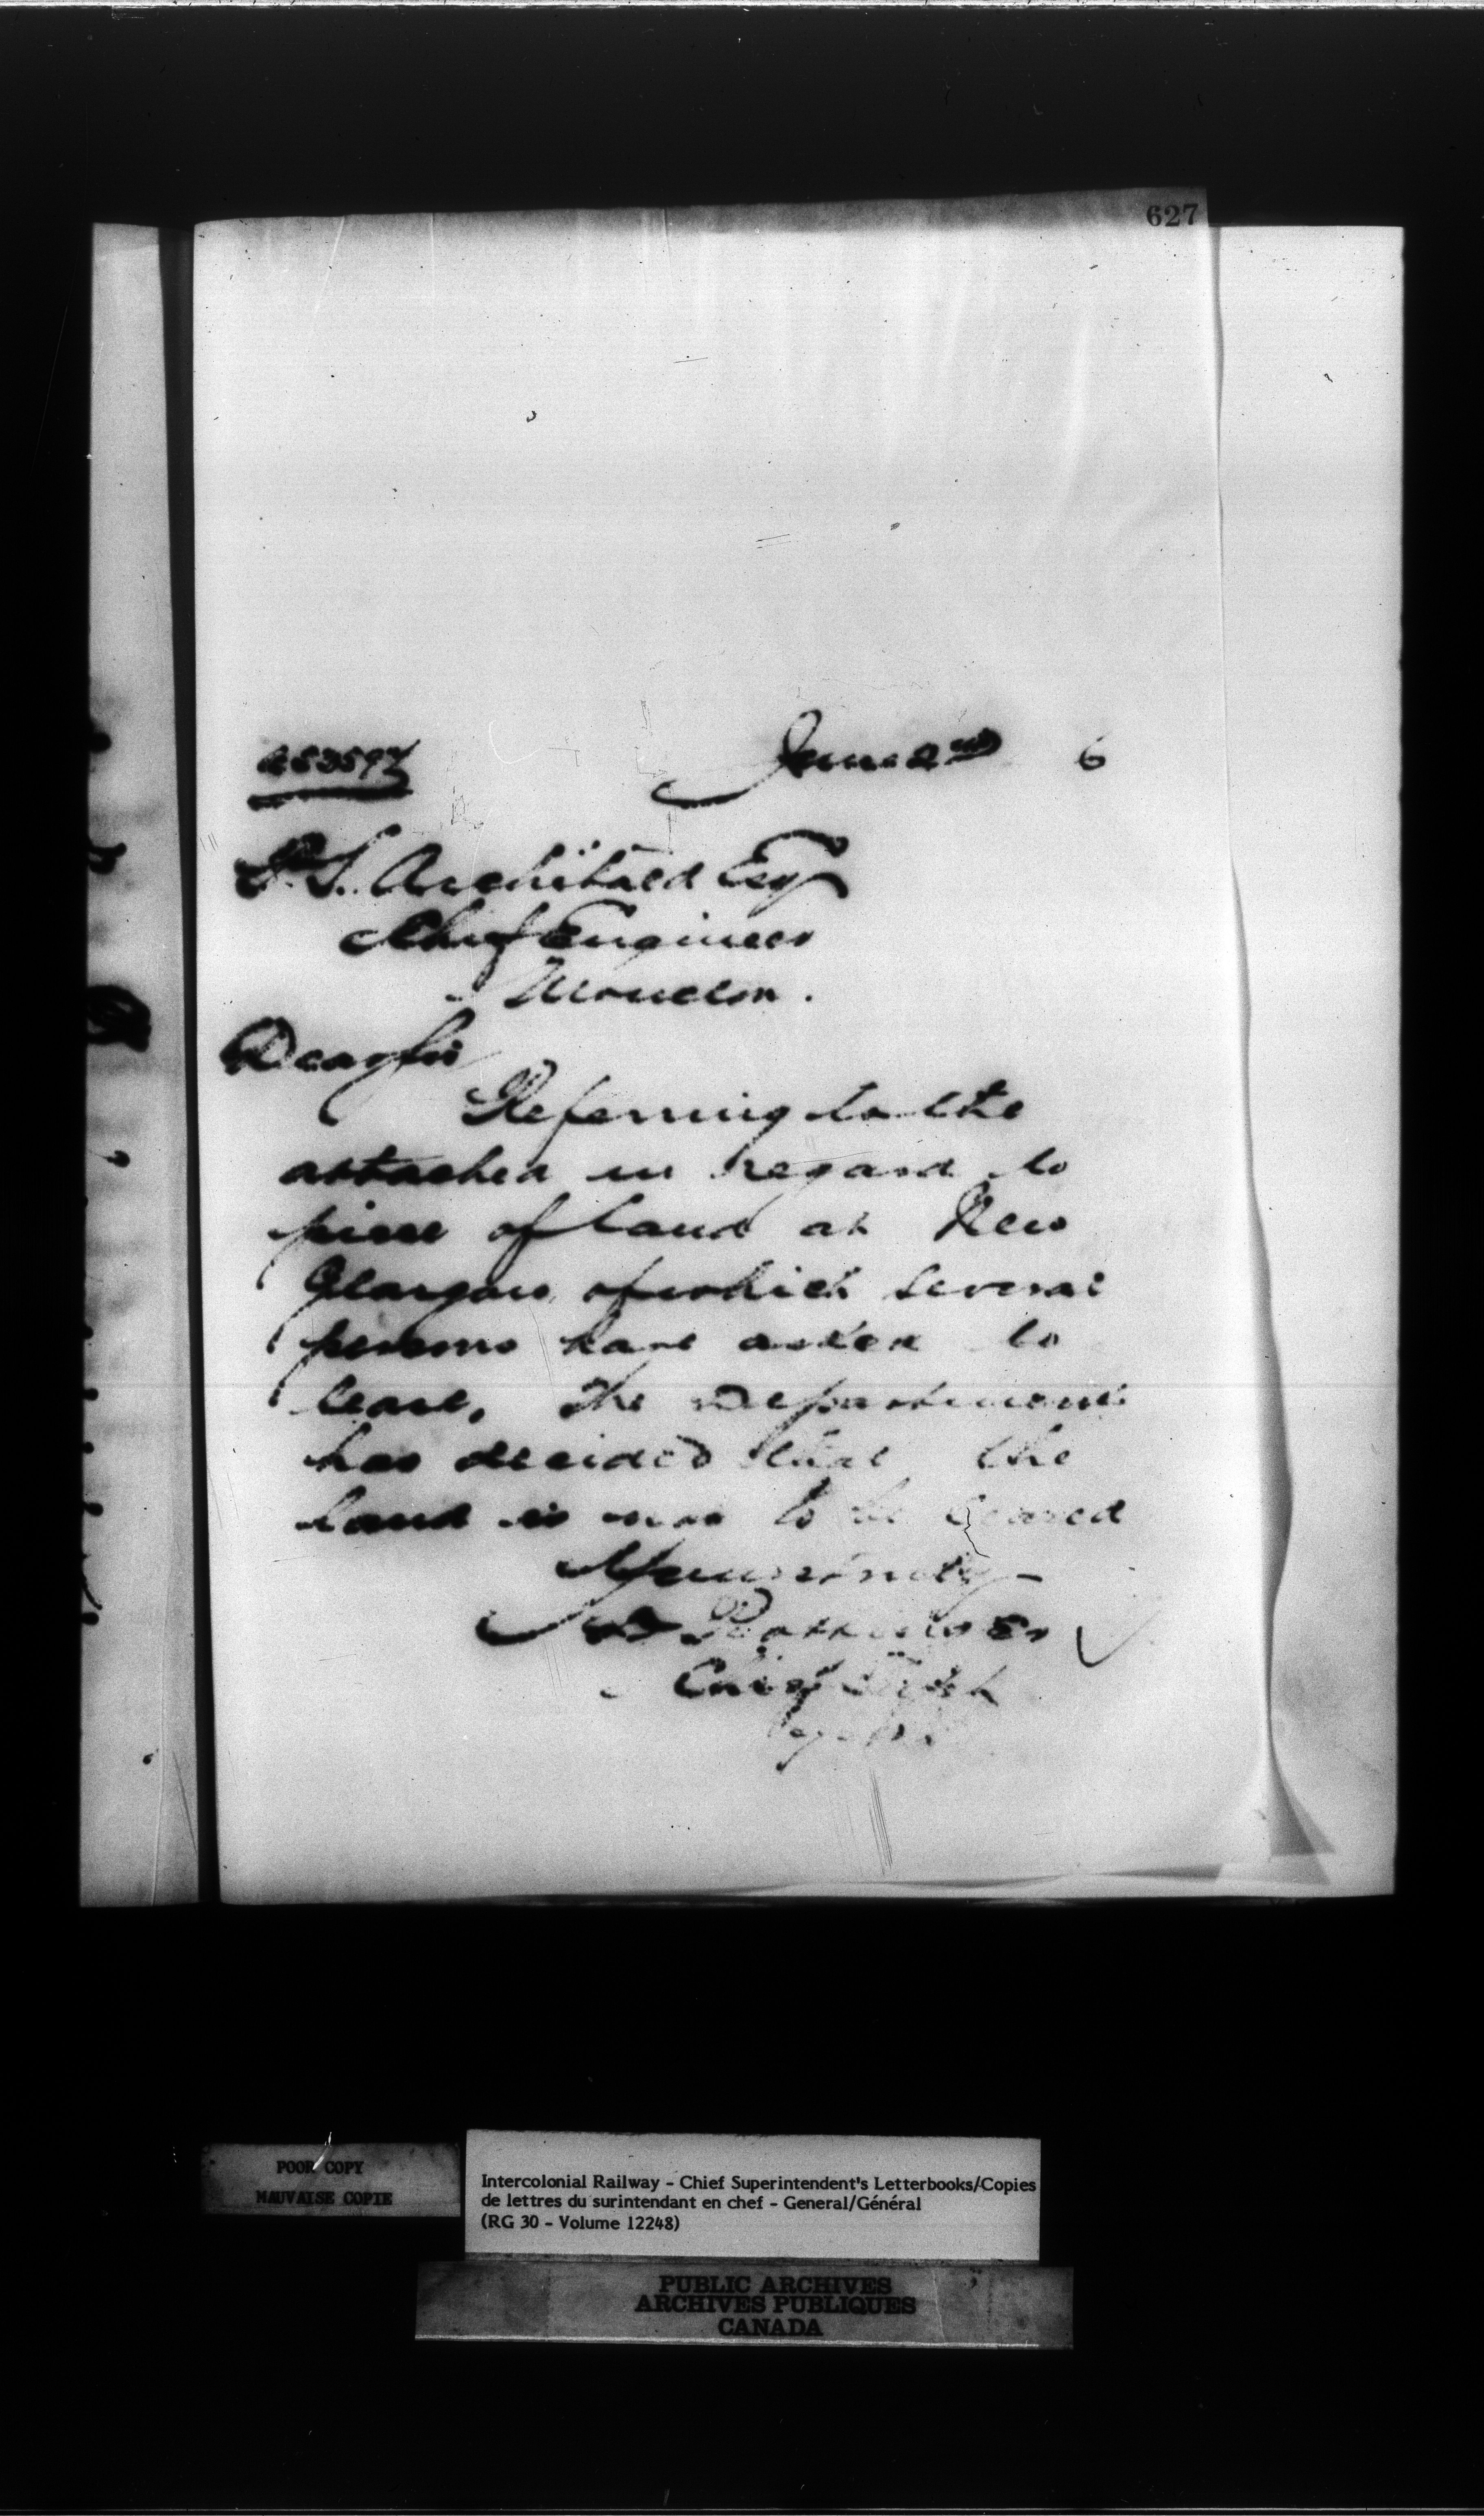 627
June 2nd 6
P. S. Archibald Esq
Chief Engineer
Moncton.
Dear Sir
Referring to the
attached in regard to
piece of land at New
Glasgow, of which several
persons have asked to
lease, the Department
has decided that the
land is not to be leased
Yours truly
D Pottinger
Chief Supt
POOR COPY
MAUVAISE COPIE
Intercolonial Railway - Chief Superintendent's Letterbooks/Copies
de lettres du surintendant en chef - General/Général
(RG 30 - Volume 12248)
PUBLIC ARCHIVES
ARCHIVES PUBLIQUES
CANADA